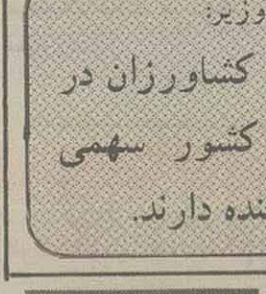 وزیر:
کشاورزان در
کشور سهمی
دارند.